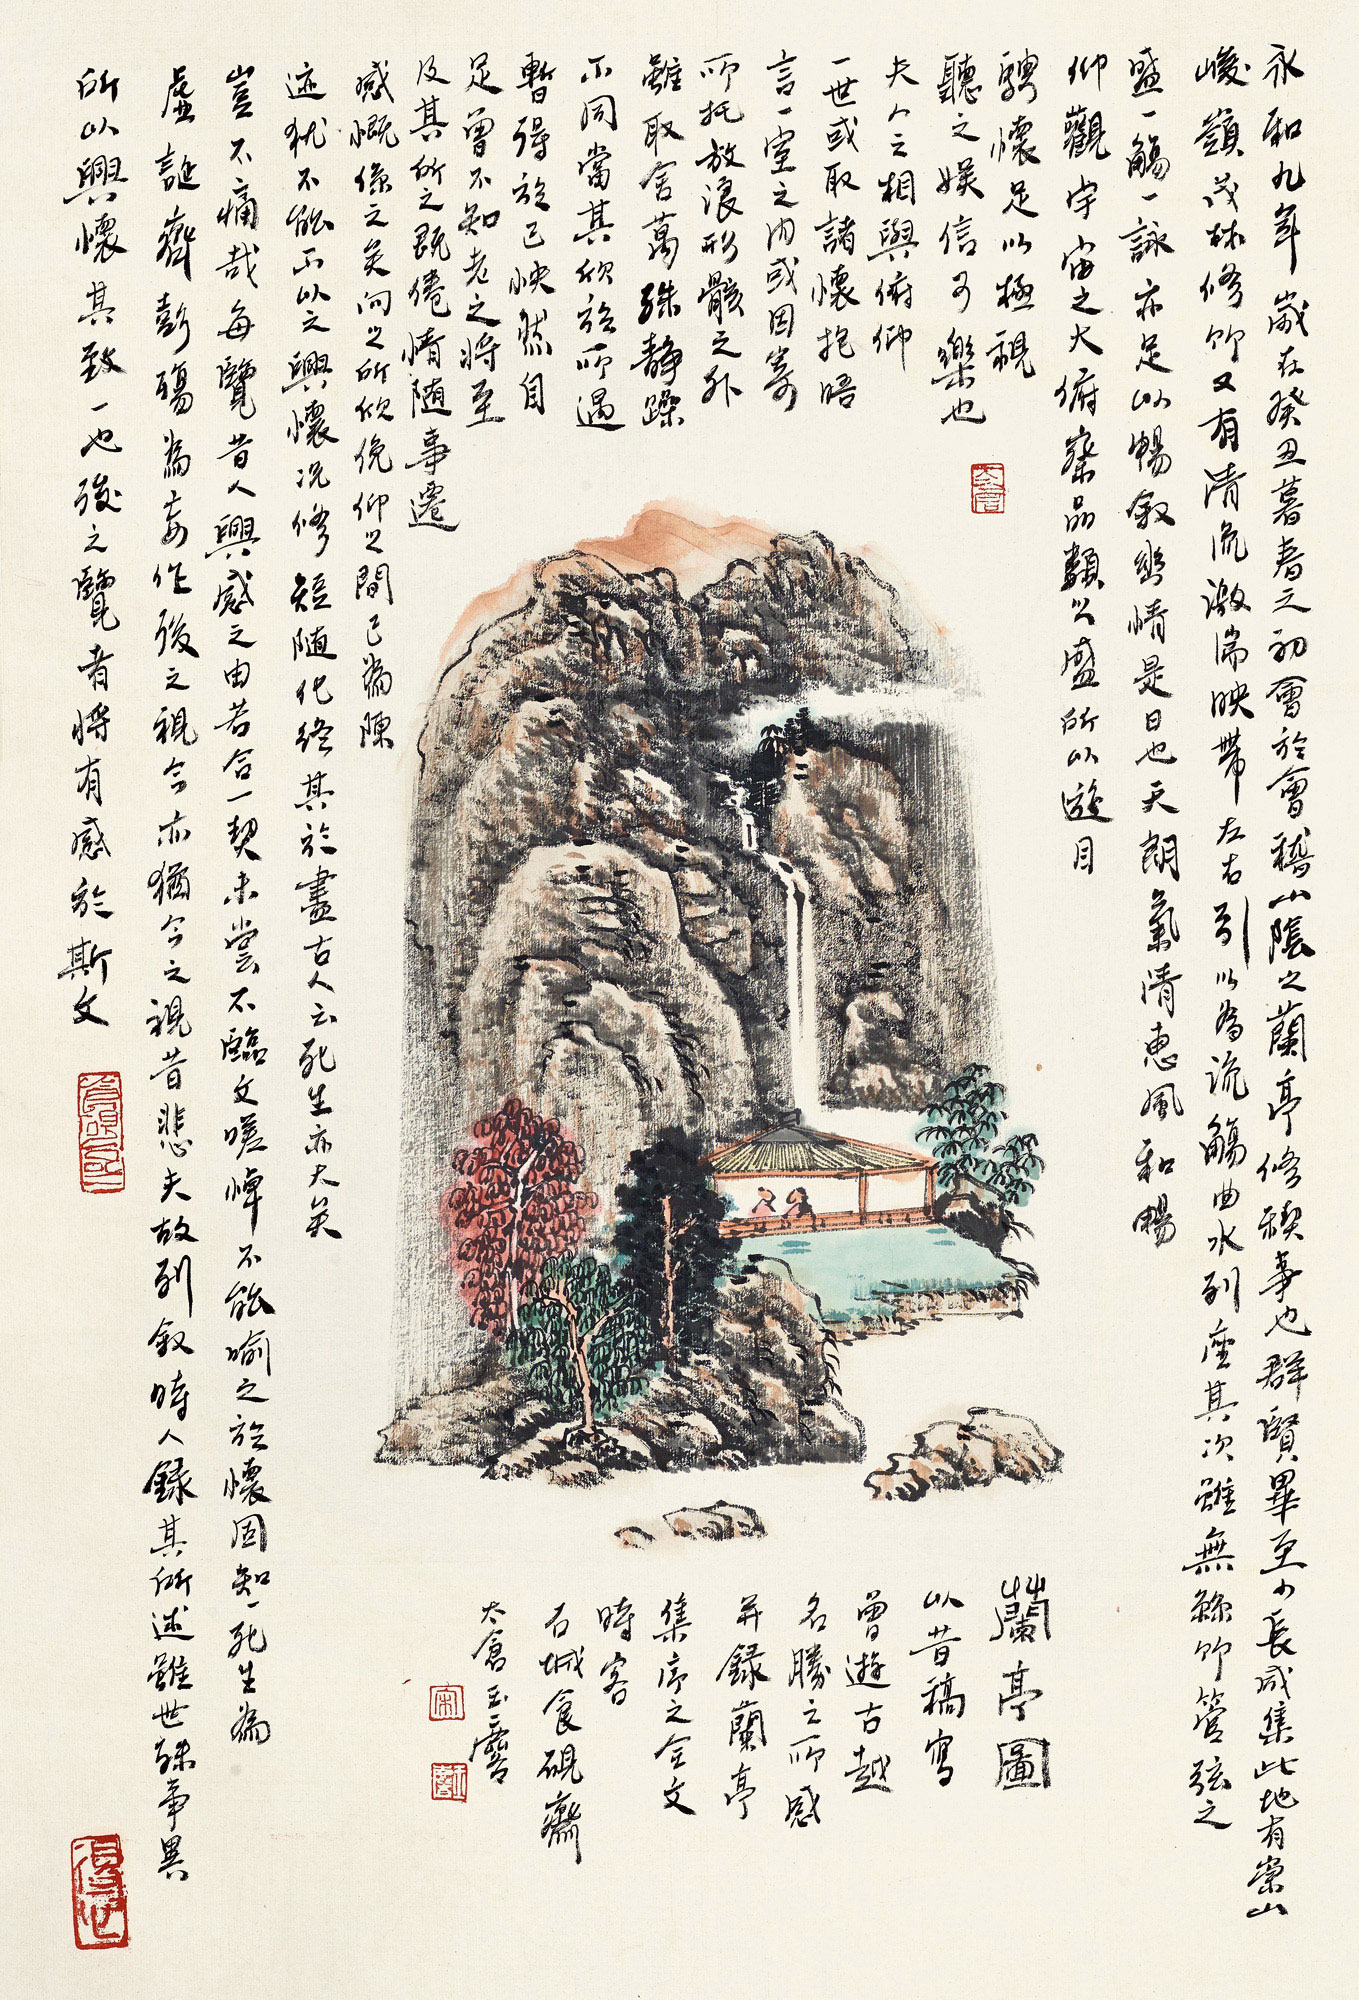 永和九年歲在癸丑暮春之初會於會稽山陰之蘭亭修禊事也群賢畢至少長咸集此地有崇山
峻嶺茂林修竹又有清流激湍映帶左右引以為流觴曲水列座其次雖無絲竹管弦之
盛一觴一詠亦足以暢叙幽情是日也天朗氣清惠風和暢
仰觀宇宙之大俯察品類之盛所以遊目
騁懷足以極視
聽之娛信可樂也
夫人之相與俯仰
一世或取諸懷抱晤
言一室之內或因寄
所托放浪形骸之外
雖取舍萬殊静躁
不同當其欣於所遇
暫得於己怏然自
足曾不知老之將至
及其所之既倦情隨事遷
感慨係之矣向之所欣俛仰之間已為陳
迹猶不能不以之興懷況修短隨化終其於盡古人云死生亦大矣
豈不痛哉每覽昔人興感之由若合一契未嘗不臨文嗟悼不能喻之於懷固知一死生為
虛誕齊彭殤為妄作後之視今亦猶今之視昔悲夫故列叙時人錄其所述雖世殊事異
所以興懷其致一也後之覽者將有感於斯文
蘭亭圖
以昔稿寫
曾遊古越
名勝之所感
并錄蘭亭
集序之全文
時客
石城食硯齋
太倉玉麐
宋